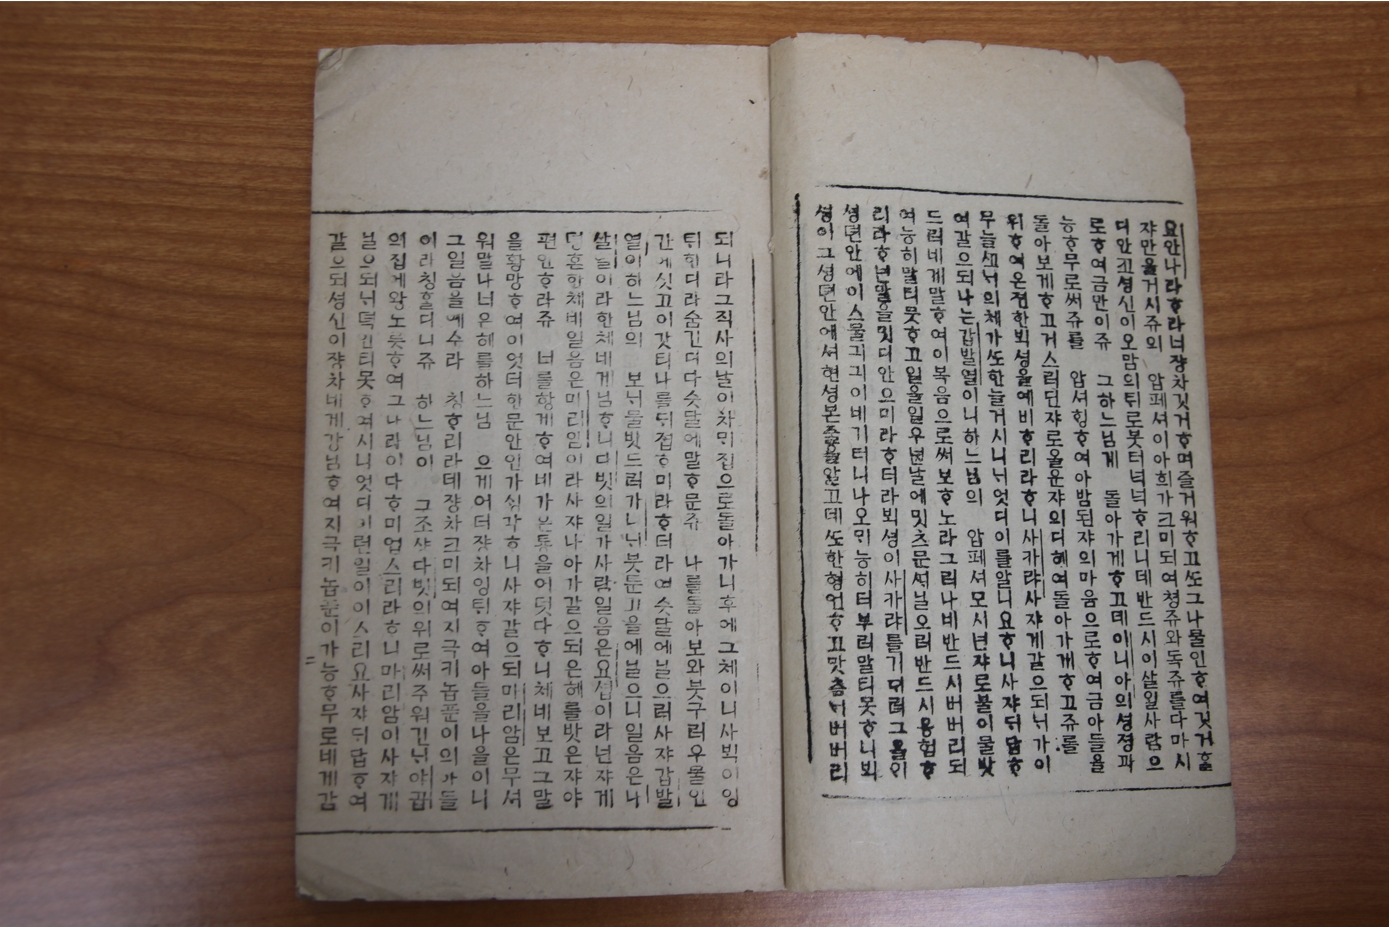 요안나라ᄒᆞ라너쟝차깃거ᄒᆞ며즐거워ᄒᆞ고ᄯᅩ그나물인ᄒᆞ여깃거ᄒᆞᆯ
쟈만을거시쥬의 압페셔이아희가크미되여쳥쥬와독쥬를다마시
디안코셩신이오맘의ᄐᆡ로붓터넉넉ᄒᆞ리니데반드시이살일사람으
로ᄒᆞ여금만이쥬 그하느님게 돌아가게ᄒᆞ고데이니아의셩졍과
능ᄒᆞ무로써쥬를 압셔ᄒᆡᆼᄒᆞ여아밤된쟈의마음으로ᄒᆞ여금아들을
돌아보게ᄒᆞ고거스리던쟈로올운쟈의디헤여돌아가개ᄒᆞ고쥬를
위ᄒᆞ여온젼한ᄇᆡᆨ셩을예비ᄒᆞ리라ᄒᆞ니사카랴사쟈게갈으되ᄂᆡ가이
무늘섯ᄂᆡ의체가ᄯᅩ한늘거시니ᄂᆡ엇디이를알니요ᄒᆞ니사쟈ᄃᆡ답ᄒᆞ
여갈으되나는갑발열이니하느님의 압페셔모시년쟈로불이물밧
드러네게말ᄒᆞ여이복음으로써보ᄒᆞ노라그러나네반드시버버리되
여능히말티못ᄒᆞ고일울일우년날에밋츠문ᄂᆡ닐오러반드시응험ᄒᆞ
리라ᄒᆞ년말을밋디안으미라ᄒᆞ터라ᄇᆡᆨ셩이사카랴를기ᄃᆞ려그
셩뎐안에이스물긔긔이네기터니나오ᄆᆡ능히더부러말티못ᄒᆞ니ᄇᆡᆨ
셩이그셩뎐안에셔현셩본줄을알고데ᄯᅩ한형언ᄒᆞ고맛츰ᄂᆡ버버리
되니라그직사의날이차ᄆᆡ집으로돌아가니후에그체이니사벡이잉
ᄐᆡ한디라숨긴디다슷달에말ᄒᆞ문쥬 나를돌아보와붓구러우물인
간에싯고이갓티나를ᄃᆡ접ᄒᆞ미라ᄒᆞ더라여슷달에닐으러사쟈갑발
열이하느님의 보ᄂᆡ물밧드러가니ᄂᆡ붓둔고을에닐으니일음은나
살닐이라한체네게님ᄒᆞ니다빗의일가사람일음은요셥이라년쟈게
뎡혼한체네일음은마리암이라사쟈나아가갈으되은혜를밧은쟈야
편안ᄒᆞ라쥬 너를함게ᄒᆞ여네가온통을어덧다ᄒᆞ니체네보고그말
을황망ᄒᆞ여이엇더한문안인가ᄉᆡᆼ각ᄒᆞ니사쟈갈으되마리암은무셔
워말나너은혜를하느님 으게어더쟝차잉ᄐᆡᄒᆞ여아들을나을이니
그일음을예수라 칭ᄒᆞ리라데쟝차크미되여지극키놉푼이의아들
이라칭ᄒᆞᆯ디니쥬 하느님이 그조샹다빗의위로써주워긴ᄂᆡ야곱
의집게왕노릇ᄒᆞ여그나라이다ᄒᆞ미업스리라ᄒᆞ니마리암이사쟈게
닐으되ᄂᆡ덕긴티못ᄒᆞ여시니엇디이런일이이스리요사쟈ᄃᆡ답ᄒᆞ여
갈으되셩신이쟝차네게강님ᄒᆞ여지극키놉푼이가능ᄒᆞ무로네게감